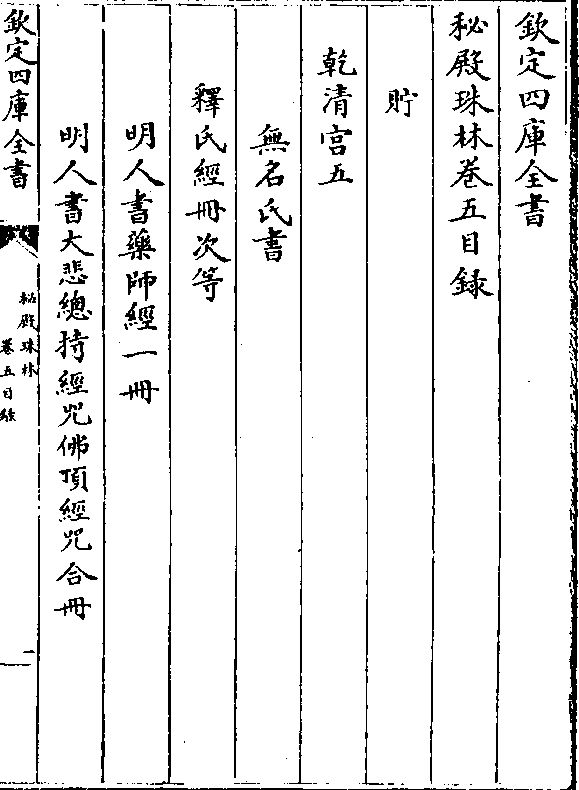 欽定四庫全書
秘殿珠林卷五目録
貯
乾清宫五
無名氏書
釋氏經冊次等
明人書藥師經一冊
明人書大悲總持經咒佛頂經咒合冊
欽定四庫全書
秘殿珠林
卷五目録
一